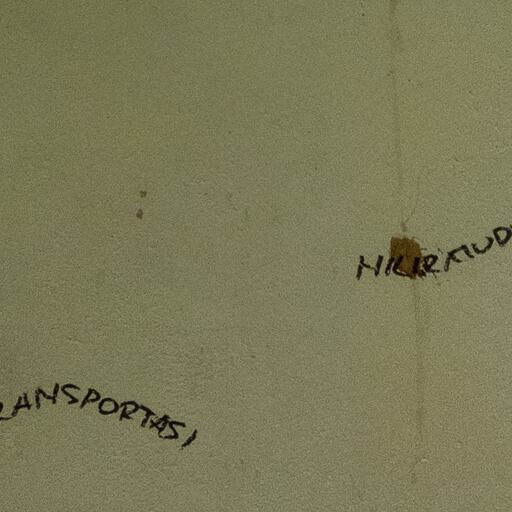 HILIR MUD
RANSPORTASI